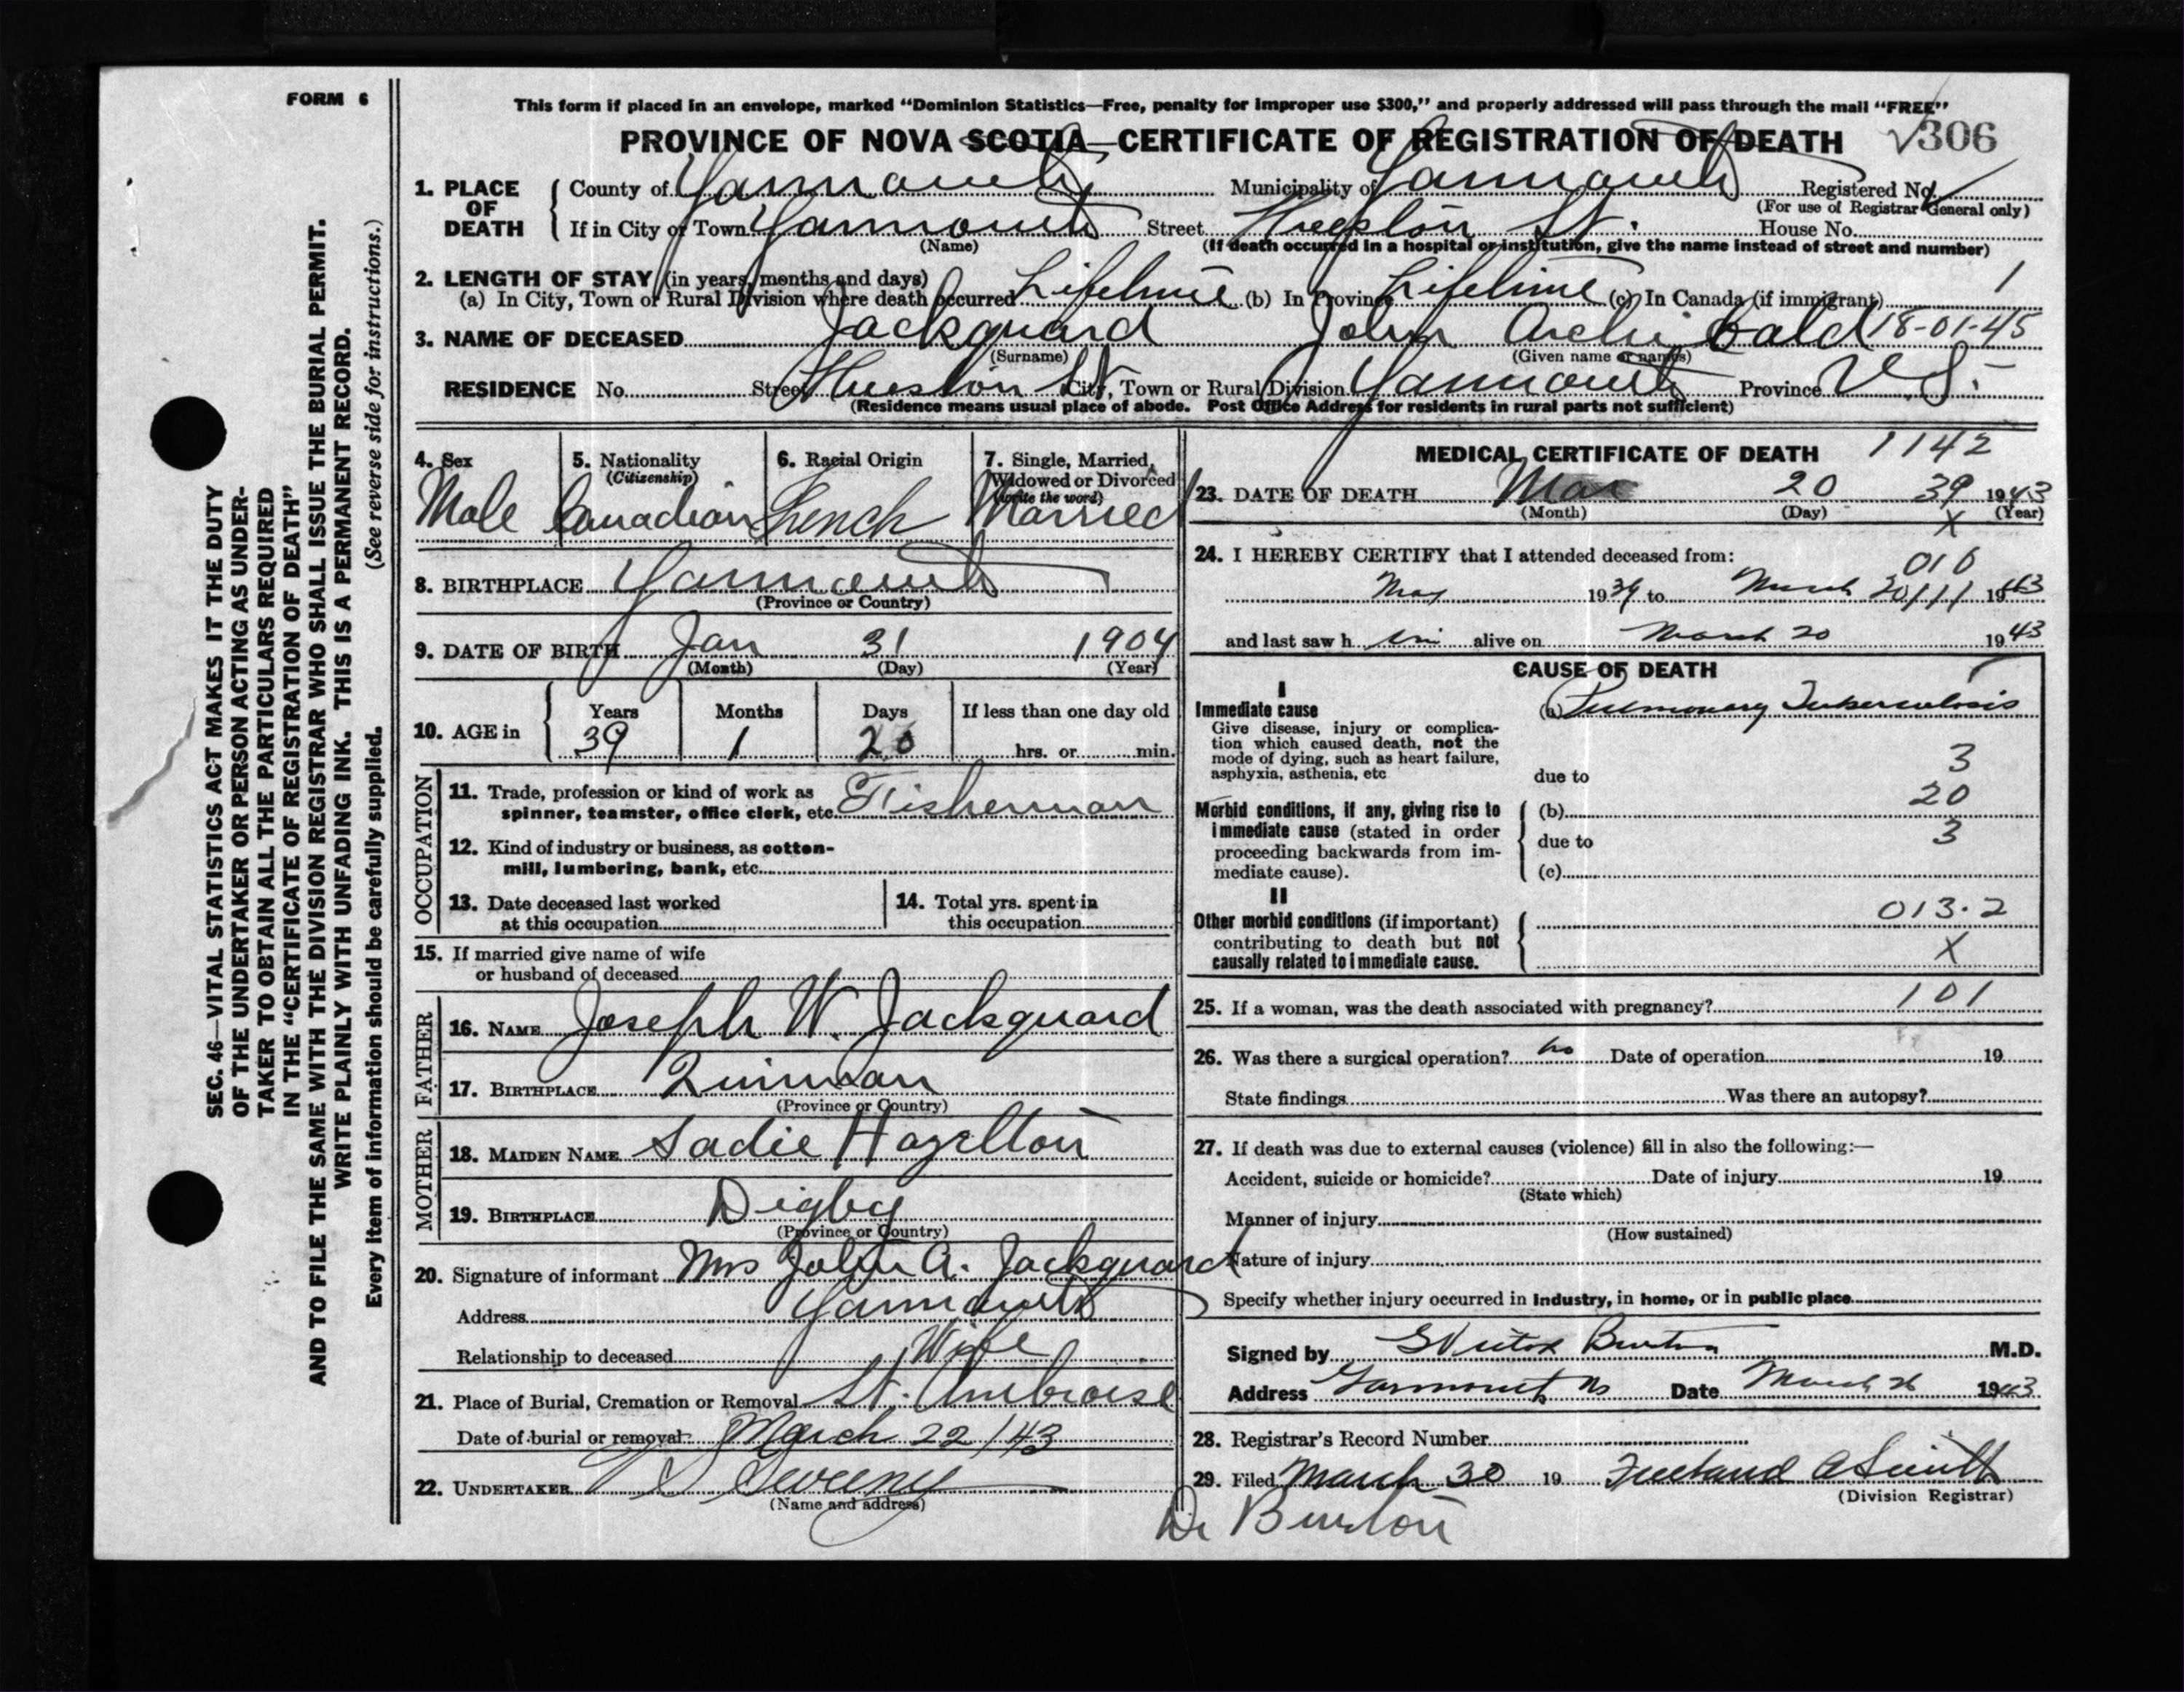 FORM 6
This form if placed in an envelope, marked "Dominion Statistics—Free, penalty for improper use $300," and properly addressed will pass through the mail "FREE"
PROVINCE OF NOVA SCOTIA—CERTIFICATE OF REGISTRATION OF DEATH √306
1. PLACE OF DEATH
County of Yarmouth Municipality of Yarmouth Registered No.
(For use of Registrar General only)
If in City or Town Yarmouth Street St. House No.
(Name) (If death occurred in a hospital or institution, give the name instead of street and number)
2. LENGTH OF STAY (in years, months and days) 1
(a) In City, Town or Rural Division where death occurred Lifetime (b) In Province Lifetime (c) In Canada (if immigrant)
3. NAME OF DECEASED Jackquard John Archibald 18-01-45
(Surname) (Given name or names)
RESIDENCE No. Street St. City, Town or Rural Division Yarmouth Province N.S.
(Residence means usual place of abode. Post Office Address for residents in rural parts not sufficient)
4. Sex 5. Nationality 6. Racial Origin 7. Single, Married,
(Citizenship) Widowed or Divorced
(write the word)
Male Canadian French Married
8. BIRTHPLACE Yarmouth
(Province or Country)
9. DATE OF BIRTH Jan 31 1904
(Month) (Day) (Year)
10. AGE in Years Months Days If less than one day old
39 1 20 hrs. or min.
OCCUPATION
11. Trade, profession or kind of work as
spinner, teamster, office clerk, etc. Fisherman
12. Kind of industry or business, as cotton-
mill, lumbering, bank, etc.
13. Date deceased last worked
at this occupation
14. Total yrs. spent in
this occupation
15. If married give name of wife
or husband of deceased
FATHER
16. NAME Joseph W. Jackquard
17. BIRTHPLACE Quinnan
(Province or Country)
MOTHER
18. MAIDEN NAME Sadie Hazelton
19. BIRTHPLACE Digby
(Province or Country)
20. Signature of informant Mrs John A. Jackquard
Address Yarmouth
Relationship to deceased Wife
21. Place of Burial, Cremation or Removal St. Ambroise
Date of burial or removal March 22/43
22. UNDERTAKER Sweeny
(Name and address)
MEDICAL CERTIFICATE OF DEATH 1142
23. DATE OF DEATH Mar 20 39 1943
(Month) (Day) X (Year)
24. I HEREBY CERTIFY that I attended deceased from:
010
May 1939 to March 20 1943
and last saw h im alive on March 20 1943
CAUSE OF DEATH
I
Immediate cause (a) Pulmonary Tuberculosis
Give disease, injury or complica-
tion which caused death, not the
mode of dying, such as heart failure, 3
asphyxia, asthenia, etc due to
20
Morbid conditions, if any, giving rise to (b)
immediate cause (stated in order 3
proceeding backwards from im- due to
mediate cause). (c)
II
013.2
Other morbid conditions (if important)
contributing to death but not X
causally related to immediate cause.
25. If a woman, was the death associated with pregnancy? 101
26. Was there a surgical operation? no Date of operation 19
State findings Was there an autopsy?
27. If death was due to external causes (violence) fill in also the following:—
Accident, suicide or homicide? Date of injury 19
(State which)
Manner of injury
(How sustained)
Nature of injury
Specify whether injury occurred in industry, in home, or in public place
Signed by Burton M.D.
Address Yarmouth NS Date March 26 1943
28. Registrar's Record Number
29. Filed March 30 19 A Smith
(Division Registrar)
Dr Burton
SEC. 46—VITAL STATISTICS ACT MAKES IT THE DUTY
OF THE UNDERTAKER OR PERSON ACTING AS UNDER-
TAKER TO OBTAIN ALL THE PARTICULARS REQUIRED
IN THE "CERTIFICATE OF REGISTRATION OF DEATH"
AND TO FILE THE SAME WITH THE DIVISION REGISTRAR WHO SHALL ISSUE THE BURIAL PERMIT.
WRITE PLAINLY WITH UNFADING INK. THIS IS A PERMANENT RECORD.
Every item of information should be carefully supplied. (See reverse side for instructions.)